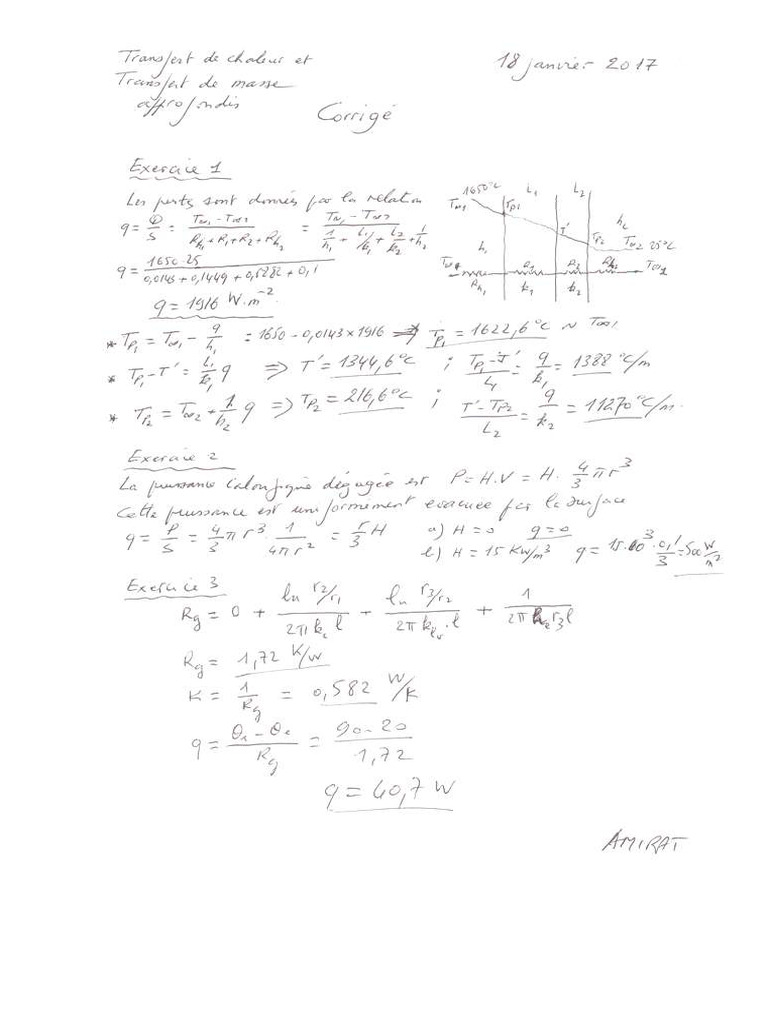 Transfert de chaleur et
Transfert de masse
approfondis
18 janvier 2017
Corrigé
Exercice 1
Les pertes sont données par la relation
q = Φ/S = (T∞1 - T∞2)/(Rh1 + R1 + R2 + Rh2) = (T∞1 - T∞2)/(1/h1 + L1/k1 + L2/k2 + 1/h2)
q = (1650-25)/(0,0143 + 0,1449 + 0,5882 + 0,1)
q = 1916 W.m⁻²
1650°C L1 L2
T∞1 Tp1 T' Tp2 h2 T∞2 25°C
h1
Rh1 R1 R2 Rh2
k1 k2
* Tp1 = T∞1 - q/h1 = 1650 - 0,0143 × 1916 ⟹ Tp1 = 1622,6°C ~ T∞1.
* Tp1 - T' = L1/k1 q ⟹ T' = 1344,6°C ; (Tp1 - T')/L1 = q/k1 = 1388 °C/m
* Tp2 = T∞2 + 1/h2 q ⟹ Tp2 = 216,6°C ; (T' - Tp2)/L2 = q/k2 = 11270 °C/m.
Exercice 2
La puissance calorifique dégagée est P = H.V = H. 4/3 π r³
Cette puissance est uniformement evacuée par la surface
q = P/S = 4/3 π r³ . 1/(4πr²) = r/3 H a) H = 0 q = 0
b) H = 15 KW/m³ q = 15.10³ . 0,1/3 = 500 W/m²
Exercice 3
Rg = 0 + (ln r2/r1)/(2π kc l) + (ln r3/r2)/(2π klv . l) + 1/(2π h2 r3 l)
Rg = 1,72 K/W
K = 1/Rg = 0,582 W/K
q = (θi - θe)/Rg = (90-20)/1,72
q = 40,7 W
AMIRAT